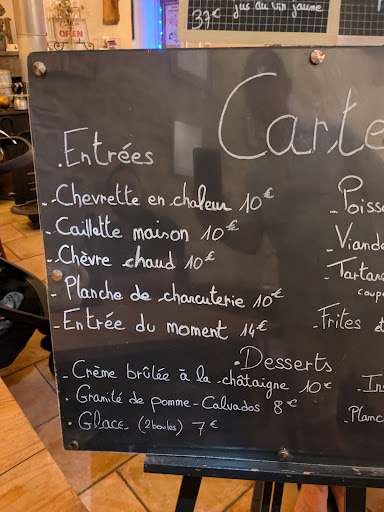 OPEN
37€ jus au vin jaune
Carte
. Entrées
- Chevrette en chaleur 10€
- Caillette maison 10€
- Chèvre chaud 10€
- Planche de charcuterie 10€
- Entrée du moment 14€
- Poisso
- Viande
- Tartar
coup
- Frites et
. Desserts
- Crème brûlée à la châtaigne 10€
• Granité de pomme - Calvados 8€
• Glace (2 boules) 7€
- In
- Planc